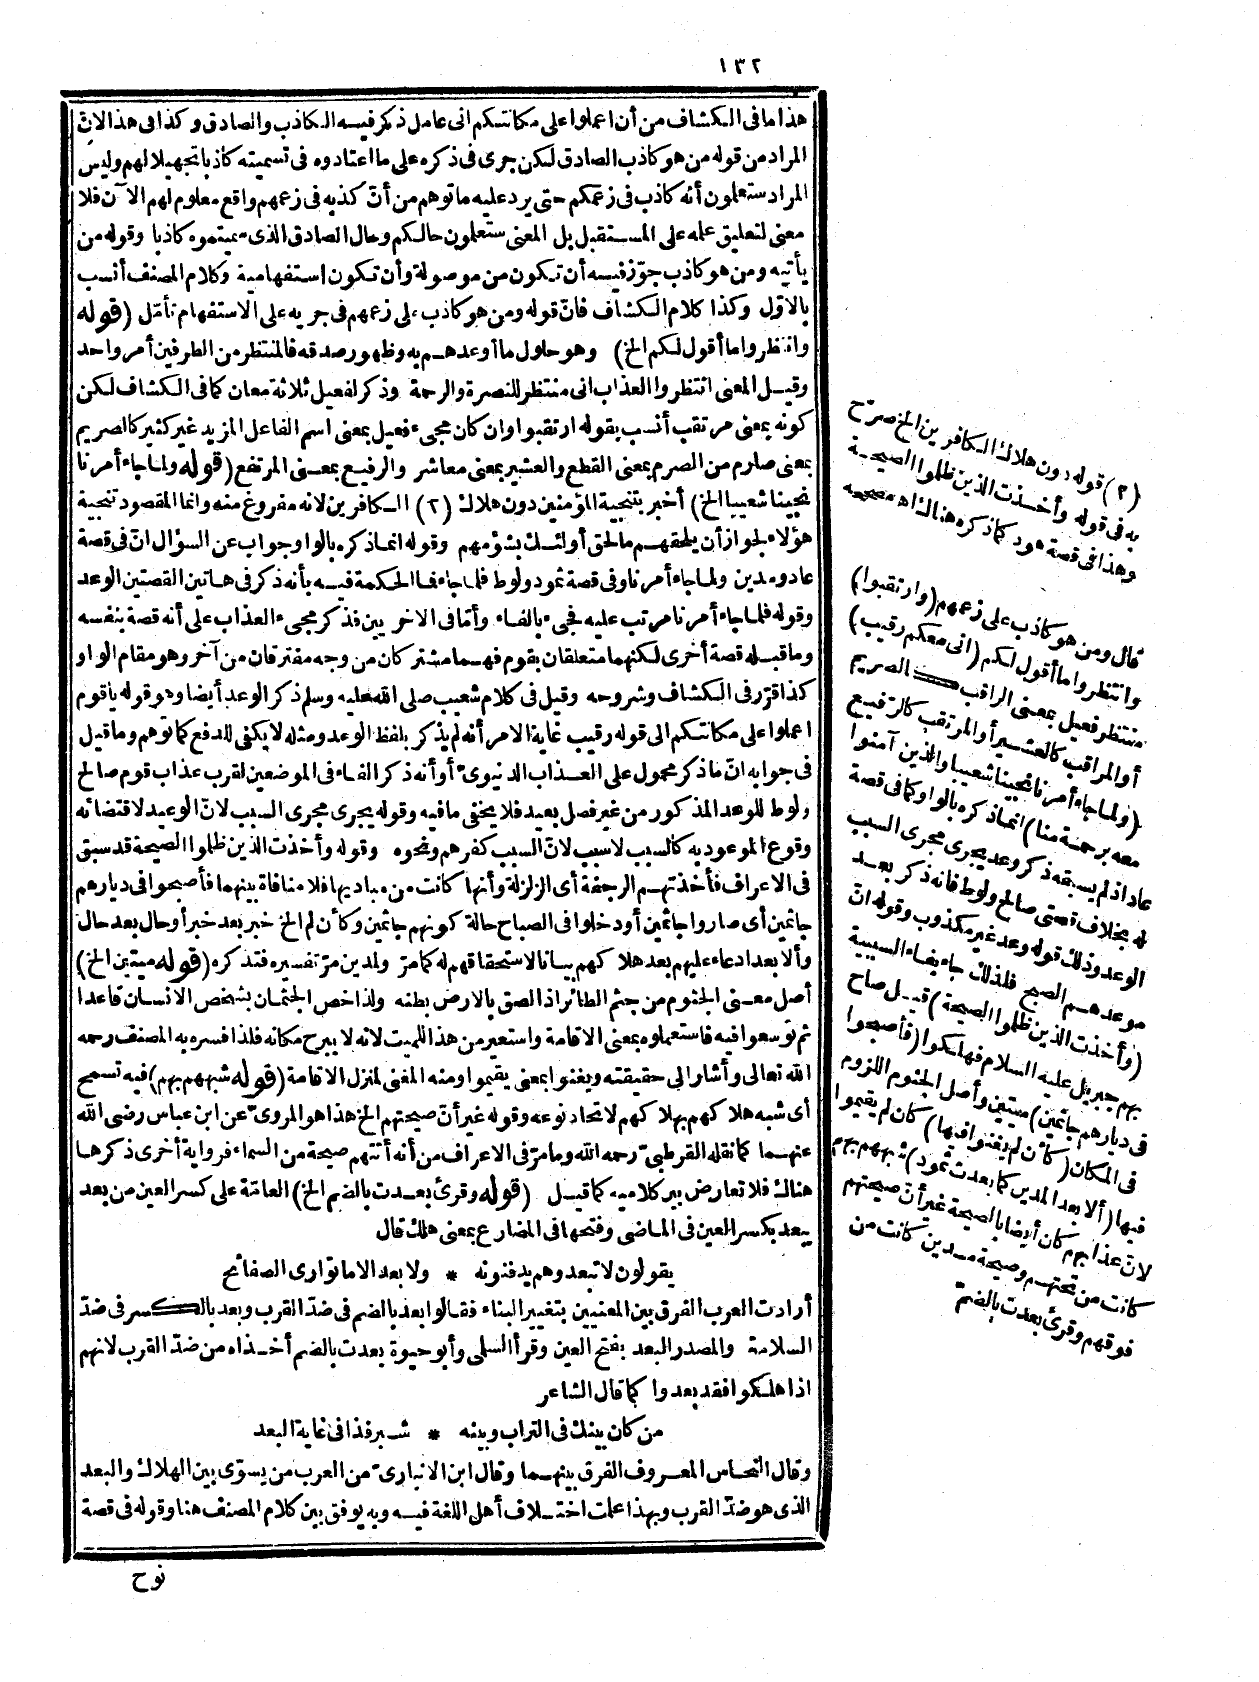 ١٣٢
هذا ما فى الكشاف من أن اعملوا على مكانتكم انى عامل ذكر فيه الكاذب والصادق وكذا فى هذا لانّ
المراد من قوله من هو كاذب الصادق لكن جرى فى ذكره على ما اعتادوه فى تسميته كاذبا تجهيلا لهم وليس
المراد ستعلمون أنه كاذب فى زعمكم حتى يرد عليه ما توهم من أنّ كذبه فى زعمهم واقع معلوم لهم الآن فلا
معنى لتعليق علمه على المستقبل بل المعنى ستعلمون حالكم وحال الصادق الذى سميتموه كاذبا وقوله من
يأتيه ومن هو كاذب جوّز فيه أن تكون من موصولة وأن تكون استفهامية وكلام المصنف أنسب
بالاوّل وكذا كلام الكشاف فانّ قوله ومن هو كاذب على زعمهم فى جريه على الاستفهام تأمّل (قوله
وانتظروا ما أقول لكم الخ) وهو حلول ما أوعدهم به وظهور صدقه فالمنتظر من الطرفين أمر واحد
وقيل المعنى انتظروا العذاب انى منتظر للنصرة والرحمة وذكر لفعيل ثلاثة معان كما فى الكشاف لكن
كونه بمعنى مرتقب أنسب بقوله ارتقبوا وان كان مجىء فعيل بمعنى اسم الفاعل المزيد غير كثير كالصريم
بمعنى صارم من الصرم بمعنى القطع والعشير بمعنى معاشر والرفيع بمعنى المرتفع (قوله ولما جاء أمرنا
نجينا شعيبا الخ) أخبر بتنجية المؤمنين دون هلاك (٢) الكافرين لانه مفروغ منه وانما المقصود تنجية
هؤلاء لجواز أن يلحقهم ما لحق أولئك بشؤمهم وقوله انما ذكره بالواو جواب عن السؤال انّ فى قصة
عاد ومدين ولما جاء أمرنا وفى قصة ثمود ولوط فلما جاء فما الحكمة فيه بأنه ذكر فى هاتين القصتين الوعد
وقوله فلما جاء أمرنا مرتب عليه فجىء بالفاء وأمّا فى الاخريين فذكر مجىء العذاب على أنه قصة بنفسه
وما قبله قصة أخرى لكنهما متعلقان بقوم فهما مشتركان من وجه مفترقان من آخر وهو مقام الواو
كذا قرّر فى الكشاف وشروحه وقيل فى كلام شعيب صلى الله عليه وسلم ذكر الوعد أيضا وهو قوله يا قوم
اعملوا على مكانتكم الى قوله رقيب غاية الامر أنه لم يذكر بلفظ الوعد ومثله لا يكفى للدفع كما توهم وما قيل
فى جوابه انّ ما ذكر محمول على العذاب الدنيوى أو أنه ذكر الفاء فى الموضعين لقرب عذاب قوم صالح
ولوط للوعد المذكور من غير فصل بعيد فلا يخفى ما فيه وقوله يجرى مجرى السبب لانّ الوعيد لاقتضائه
وقوع الموعود به كالسبب لا سبب لانّ السبب كفرهم ونحوه وقوله وأخذت الذين ظلموا الصيحة قد سبق
فى الاعراف فأخذتهم الرجفة أى الزلزلة وأنها كانت من مباديها فلا منافاة بينهما فأصبحوا فى ديارهم
جاثمين أى صاروا جاثمين أو دخلوا فى الصباح حالة كونهم جاثمين وكأن لم الخ خبر بعد خبر أو حال بعد حال
وألا بعدا دعاء عليهم بعد هلاكهم بيانا لاستحقاقهم له كما مرّ ولمدين مرّ تفسيره فتذكره (قوله ميتين الخ)
أصل معنى الجثوم من جثم الطائر اذا الصق بالارض بطنه ولذا خص الجثمان بشخص الانسان قاعدا
ثم توسعوا فيه فاستعملوه بمعنى الاقامة واستعير من هذا للميت لانه لا يبرح مكانه فلذا فسره به المصنف رحمه
الله تعالى وأشار الى حقيقته ويغنوا بمعنى يقيموا ومنه المغنى لمنزل الاقامة (قوله شبههم بهم) فيه تسمح
أى شبه هلاكهم بهلاكهم لاتحاد نوعه وقوله غير أنّ صيحتهم الخ هذا هو المروىّ عن ابن عباس رضى الله
عنهما كما نقله القرطبىّ رحمه الله وما مرّ فى الاعراف من أنه أتتهم صيحة من السماء فرواية أخرى ذكرها
هناك فلا تعارض بين كلاميه كما قيل (قوله وقرئ بعدت بالضم الخ) العامّة على كسر العين من بعد
يبعد بكسر العين فى الماضى وفتحها فى المضارع بمعنى هلك قال
يقولون لا تبعد وهم يدفنونه * ولا بعد الا ما توارى الصفائح
أرادت العرب الفرق بين المعنيين بتغيير البناء فقالوا بعد بالضم فى ضدّ القرب وبعد بالكسر فى ضدّ
السلامة والمصدر البعد بفتح العين وقرأ السلمى وأبو حيوة بعدت بالضم أخذاه من ضدّ القرب لانهم
اذا هلكوا فقد بعدوا كما قال الشاعر
من كان بينك فى التراب وبينه * شبر فذا فى غاية البعد
وقال النحاس المعروف الفرق بينهما وقال ابن الانبارىّ من العرب من يسوّى بين الهلاك والبعد
الذى هو ضدّ القرب وبهذا علمت اختلاف أهل اللغة فيه وبه يوفق بين كلام المصنف هنا وقوله فى قصة
نوح
(٢) قوله دون هلاك الكافرين الخ صرّح
به فى قوله وأخذت الذين ظلموا الصيحة
وهذا فى قصة هود كما ذكره هنالك اه مصححه
قال ومن هو كاذب على زعمهم (وارتقبوا)
وانتظروا ما أقول لكم (انى معكم رقيب)
منتظر فعيل بمعنى الراقب كالصريم
أو المراقب كالعشير أو المرتقب كالرفيع
(ولما جاء أمرنا نجينا شعيبا والذين آمنوا
معه برحمة منا) انما ذكره بالواو كما فى قصة
عاد اذ لم يسبقه ذكر وعد يجرى مجرى السبب
له بخلاف قصتى صالح ولوط فانه ذكر بعد
الوعد وذلك قوله وعد غير مكذوب وقوله انّ
موعدهم الصبح فلذلك جاء بفاء السببية
(وأخذت الذين ظلموا الصيحة) قيل صاح
بهم جبريل عليه السلام فهلكوا (فأصبحوا
فى ديارهم جاثمين) ميتين وأصل الجثوم اللزوم
فى المكان (كأن لم يغنوا فيها) كأن لم يقيموا
فيها (ألا بعدا لمدين كما بعدت ثمود) شبههم بهم
لانّ عذابهم كان أيضا بالصيحة غير أنّ صيحتهم
كانت من تحتهم وصيحة مدين كانت من
فوقهم وقرئ بعدت بالضمّ